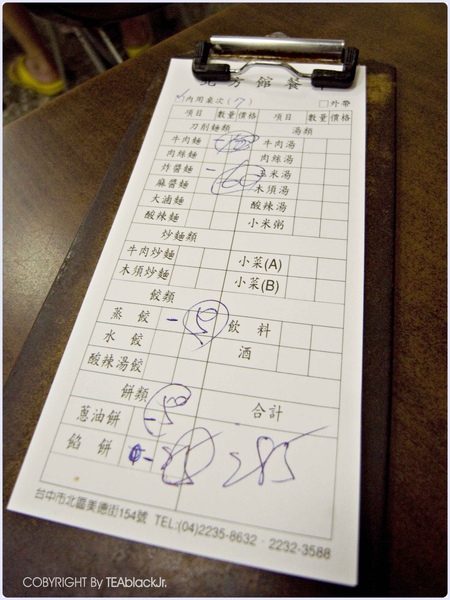 北方館餐單
✓內用桌次(7) □外帶
項目 數量 價格 項目 數量 價格
刀削麵類 湯類
牛肉麵 牛肉湯
肉絲麵 肉絲湯
炸醬麵 一 60 玉米湯
麻醬麵 木須湯
大滷麵 酸辣湯
酸辣麵 小米粥
炒麵類
牛肉炒麵 小菜(A)
木須炒麵 小菜(B)
餃類
蒸餃 一 飲料
水餃 酒
酸辣湯餃
餅類 合計
蔥油餅 一
餡餅 一 285
台中市北區美德街154號 TEL:(04)2235-8632 · 2232-3588
COBYRIGHT By TEAblackJr.